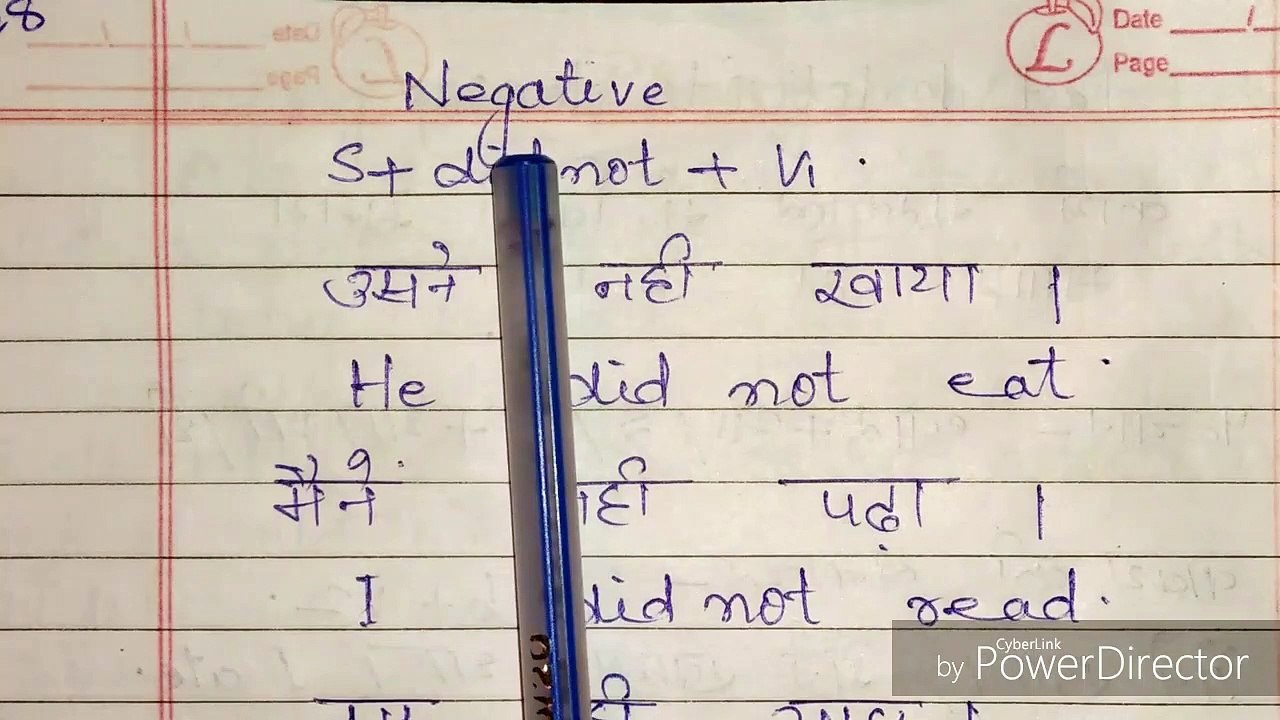 8 Date
Page
Negative
S + did not + V1 .
उसने नही खाया ।
He did not eat .
मैने नही पढ़ा ।
I did not read .
CyberLink
by PowerDirector